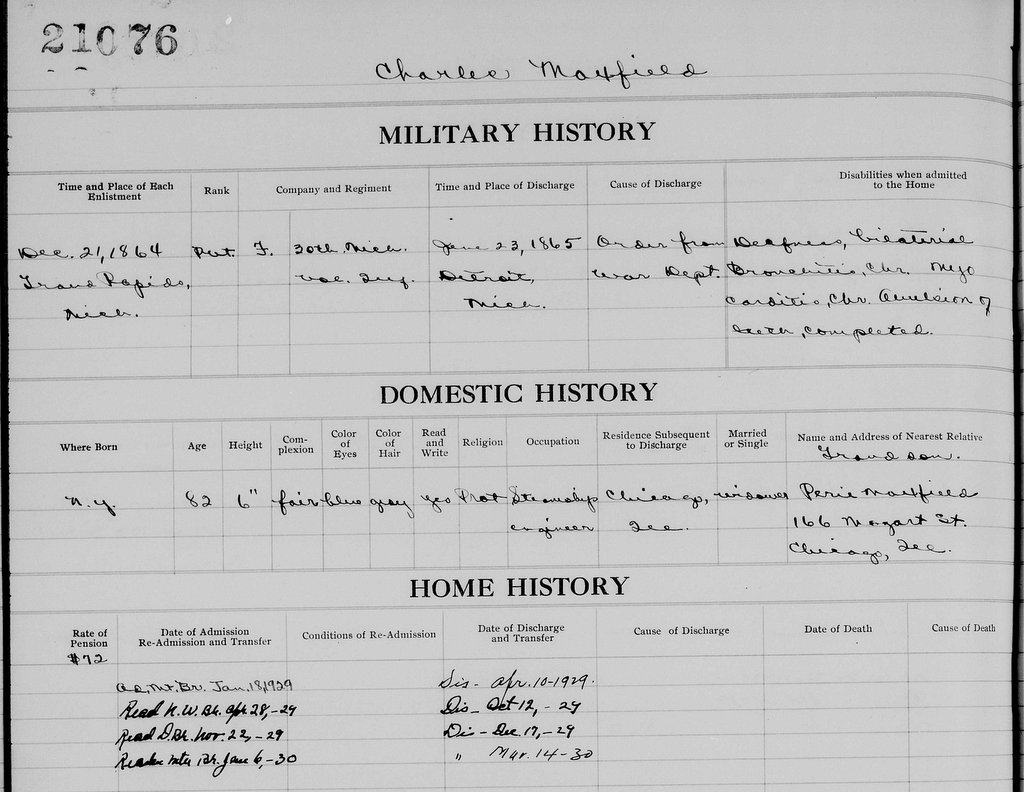 21076
Charles Maxfield
MILITARY HISTORY
Time and Place of Each Enlistment
Rank
Company and Regiment
Time and Place of Discharge
Cause of Discharge
Disabilities when admitted to the Home
Dec. 21, 1864 Pvt. F. 30th Mich. June 23, 1865 Order from Deafness, bilaterial
Grand Rapids, Vol. Inf. Detroit, War Dept. Bronchitis, Chr. Myo
Mich. Mich. carditis, Chr. Avulsion of
teeth, completed.
DOMESTIC HISTORY
Where Born
Age
Height
Com-
plexion
Color
of
Eyes
Color
of
Hair
Read
and
Write
Religion
Occupation
Residence Subsequent
to Discharge
Married
or Single
Name and Address of Nearest Relative
Grandson.
N.Y. 82 6" fair blue gray yes Prot Steamship Chicago, widower Perie Maxfield
engineer Ill. 166 Mozart St.
Chicago, Ill.
HOME HISTORY
Rate of
Pension
$72
Date of Admission
Re-Admission and Transfer
Conditions of Re-Admission
Date of Discharge
and Transfer
Cause of Discharge
Date of Death
Cause of Death
Ad. Mt. Br. Jan. 18, 1929 Dis - Apr. 10 - 1929.
Read N.W. Br. Apr 28, - 29 Dis - Oct 12, - 29
Read D. Br. Nov. 22, - 29 Dis - Dec 17, - 29
Br. Jan 6, - 30 " Mar. 14 - 30